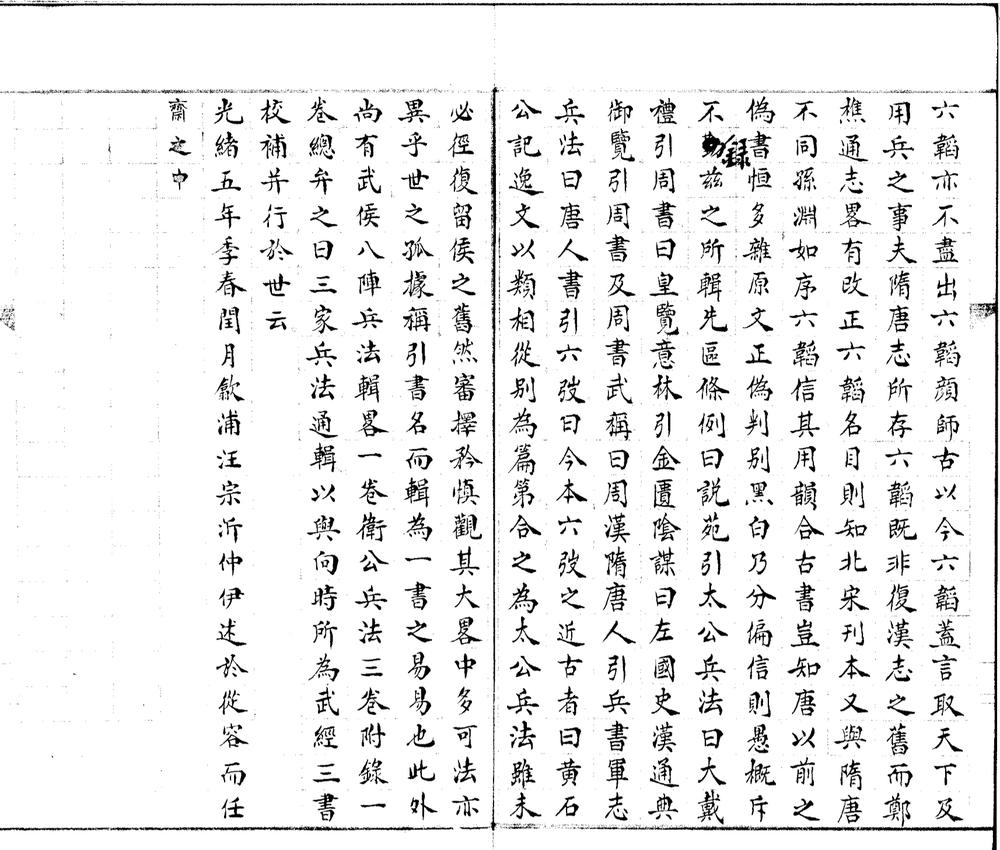 六韜亦不盡出六韜顔師古以今六韜蓋言取天下及
用兵之事夫隋唐志所存六韜既非復漢志之舊而鄭
樵通志畧有改正六韜名目則知北宋刊本又與隋唐
不同孫淵如序六韜信其用韻合古書豈知唐以前之
偽書恒多雜原文正偽判别黑白乃分偏信則愚概斥
不錄兹之所輯先區條例曰説苑引太公兵法曰大戴
禮引周書曰皇覽意林引金匱陰謀曰左國史漢通典
御覽引周書及周書武稱曰周漢隋唐人引兵書軍志
兵法曰唐人書引六弢曰今本六弢之近古者曰黄石
公記逸文以類相從别為篇第合之為太公兵法雖未
必徑復留侯之舊然審擇矜慎觀其大畧中多可法亦
異乎世之孤據稱引書名而輯為一書之易易也此外
尚有武侯八陣兵法輯畧一卷衛公兵法三卷附錄一
卷總弁之曰三家兵法通輯以與向時所為武經三書
校補并行於世云
光緒五年季春閏月歙浦汪宗沂仲伊述於從容而任
齋之中